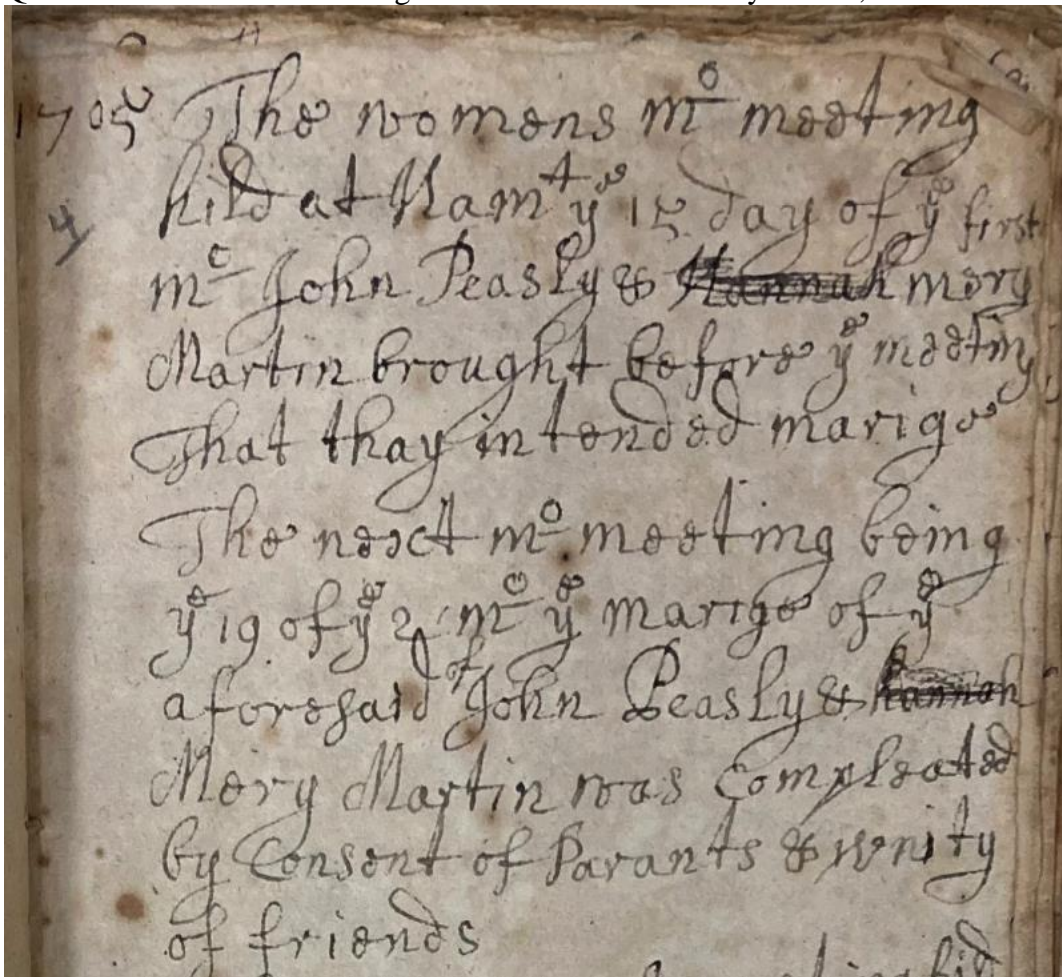 1705 The womens mo meeting
hild at Hamt ye 15 day of ye first
mo John Peasly & Hannah mery
Martin brought before ye meeting
That thay intended marige
The nexct mo meeting being
ye 19 of ye 2 mo ye marige of ye
aforesaid of John Peasly & hannah
Mery Martin was Compleated
by Consent of Parants & unity
of friends